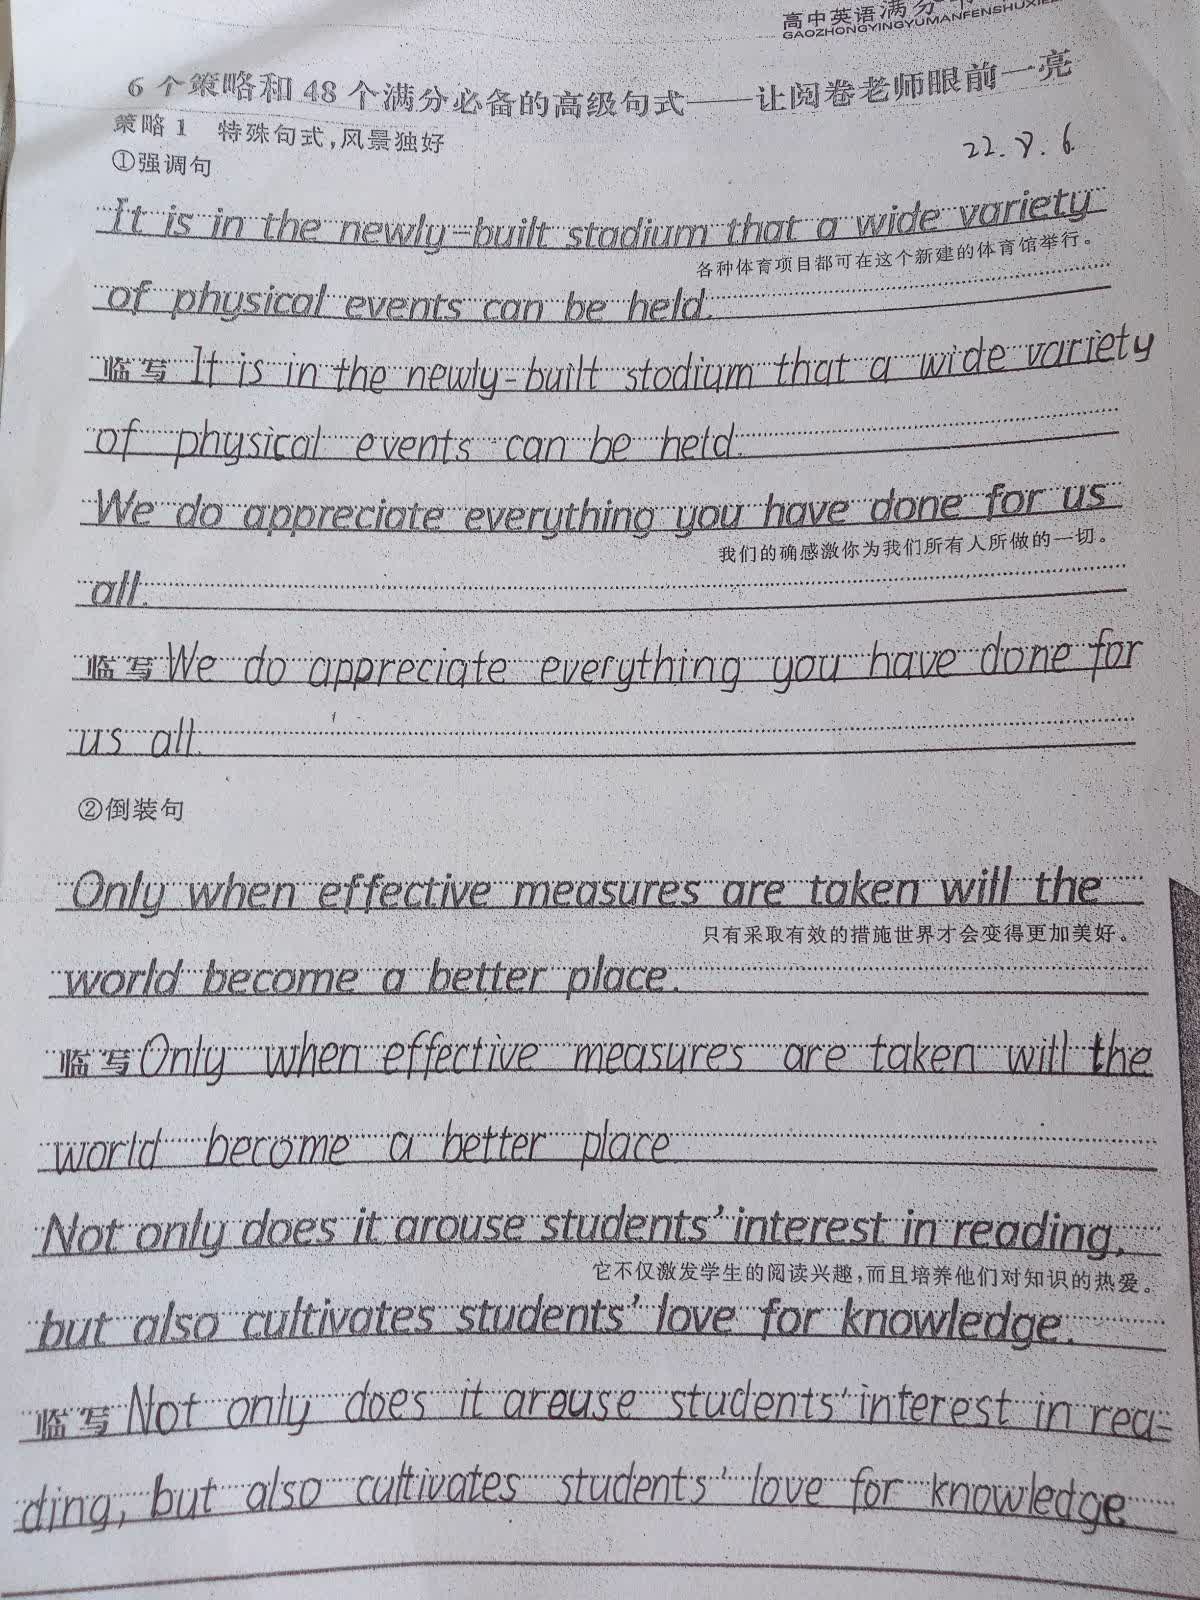 高中英语满分
GAOZHONGYINGYUMANFENSHUXIE
6个策略和48个满分必备的高级句式——让阅卷老师眼前一亮
策略1 特殊句式,风景独好
22.8.6.
①强调句
It is in the newly-built stadium that a wide variety
各种体育项目都可在这个新建的体育馆举行。
of physical events can be held.
临写 It is in the newly-built stadium that a wide variety
of physical events can be held.
We do appreciate everything you have done for us
我们的确感激你为我们所有人所做的一切。
all.
临写 We do appreciate everything you have done for
us all.
②倒装句
Only when effective measures are taken will the
只有采取有效的措施世界才会变得更加美好。
world become a better place.
临写 Only when effective measures are taken will the
world become a better place
Not only does it arouse students' interest in reading,
它不仅激发学生的阅读兴趣,而且培养他们对知识的热爱。
but also cultivates students' love for knowledge.
临写 Not only does it arouse students' interest in rea-
ding, but also cultivates students' love for knowledge